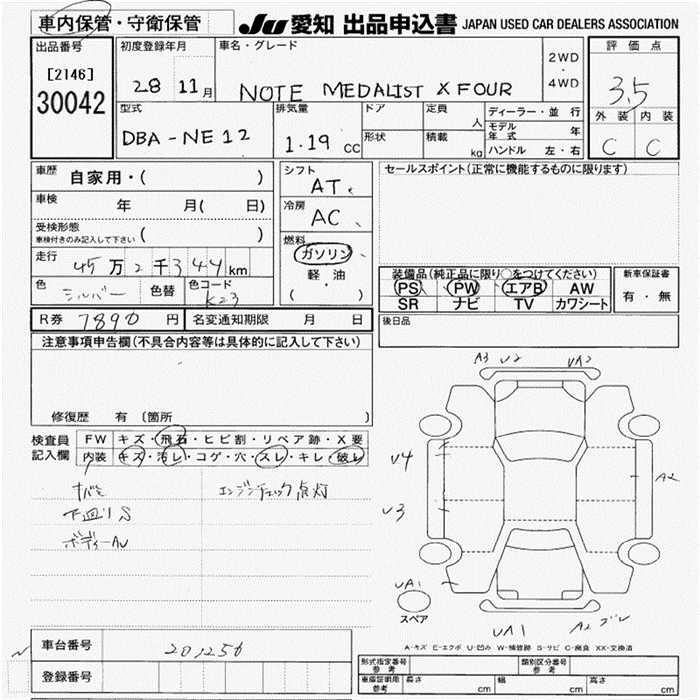 車内保管・守衛保管
JU 愛知 出品申込書 JAPAN USED CAR DEALERS ASSOCIATION
出品番号
[2146]
30042
初度登録年月
28 11月
車名・グレード
NOTE MEDALIST X FOUR
2WD
・
4WD
評価点
3.5
外装 内装
C C
型式
DBA-NE12
排気量
1.19 cc
ドア
形状
定員 人
積載 kg
ディーラー・並行
モデル年式 年
ハンドル 左・右
車歴 自家用・( )
車検 年 月( 日)
受検形態
車検付きのみ記入して下さい ( )
走行 45万2千344km
色 シルバー 色替 色コード K23
シフト
AT
冷房
AC
燃料
ガソリン
軽油
( ・ )
セールスポイント(正常に機能するものに限ります)
装備品(純正品に限り○をつけてください)
PS PW エアB AW
SR ナビ TV カワシート
新車保証書
有・無
後日品
R券 7890円 名変通知期限 月 日
注意事項申告欄(不具合内容等は具体的に記入して下さい)
修復歴 有 〔箇所 〕
検査員
記入欄
FW キズ・飛石・ヒビ割・リペア跡・X要
内装 キズ・汚レ・コゲ・穴・スレ・キレ・破レ
エンジンチェック点灯
下回りS
ボディーAU
A3 U2 UA2
V4
V3
A2
UA1
スペア
UA1
A2
A-キズ E-エクボ U-凹み W-補修跡 S-サビ C-腐食 XX-交換済
車台番号 201256
登録番号
形式指定番号
参考
類別区分番号
参考
車庫証明用
参考
長さ cm 幅 cm 高さ cm